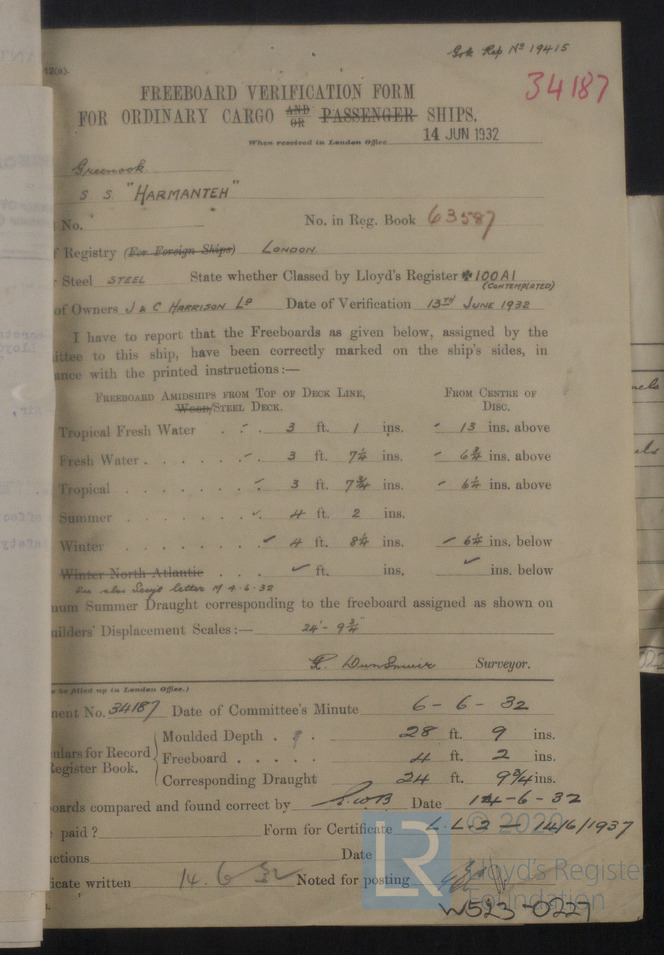 Gok Rep No 19415
12(a).
34187
FREEBOARD VERIFICATION FORM
FOR ORDINARY CARGO AND OR PASSENGER SHIPS.
When received in London Office 14 JUN 1932
Greenock
S S "HARMANTEH"
No. No. in Reg. Book 63587
f Registry (For Foreign Ships) LONDON.
r Steel STEEL State whether Classed by Lloyd's Register ✠100A1
(CONTEMPLATED)
of Owners J & C HARRISON LD Date of Verification 13TH JUNE 1932
I have to report that the Freeboards as given below, assigned by the
ittee to this ship, have been correctly marked on the ship's sides, in
ance with the printed instructions:—
FREEBOARD AMIDSHIPS FROM TOP OF DECK LINE, FROM CENTRE OF
Wood/STEEL DECK. DISC.
Tropical Fresh Water 3 ft. 1 ins. 13 ins. above
Fresh Water 3 ft. 7¼ ins. 6¾ ins. above
Tropical 3 ft. 7¾ ins. 6¼ ins. above
Summer 4 ft. 2 ins.
Winter 4 ft. 8¼ ins. 6¼ ins. below
Winter North Atlantic ft. ins. ins. below
See also Secy's letter M 4.6.32
num Summer Draught corresponding to the freeboard assigned as shown on
uilders' Displacement Scales:— 24'-9¾"
Dunsmuir Surveyor.
o be filled up in London Office.)
ment No. 34187 Date of Committee's Minute 6-6-32
Moulded Depth 28 ft. 9 ins.
ulars for Record
Register Book.
Freeboard 4 ft. 2 ins.
Corresponding Draught 24 ft. 9¾ ins.
oards compared and found correct by Date 14-6-32
paid? Form for Certificate L.L.2 — 14/6/1937
uctions Date
icate written 14.6.32 Noted for posting
© 2020
LR
Lloyd's Registe
Foundation
W523-0227